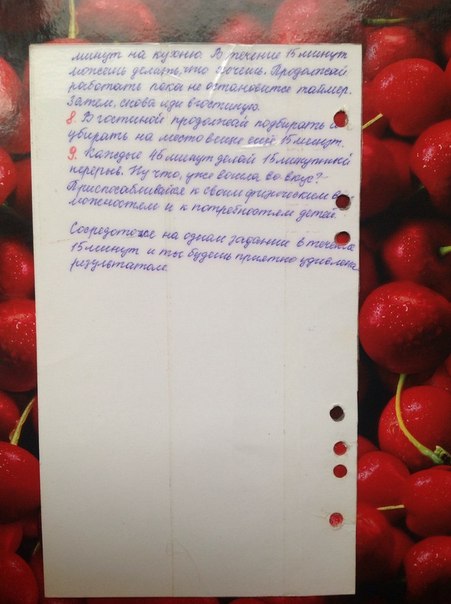 минут на кухню. В течение 15 минут
можешь делать, что хочешь. Продолжай
работать пока не остановится таймер.
Затем, снова иди в гостиную.
8. В гостиной продолжай подбирать и
убирать на место вещи ещё 15 минут.
9. Каждые 45 минут делай 15 минутный
перерыв. Ну что, уже вошла во вкус?
Приспосабливайся к своим физическим воз
можностям и к потребностям детей.
Сосредоточься на одном задании в течение
15 минут и ты будешь приятно удивлена
результатом